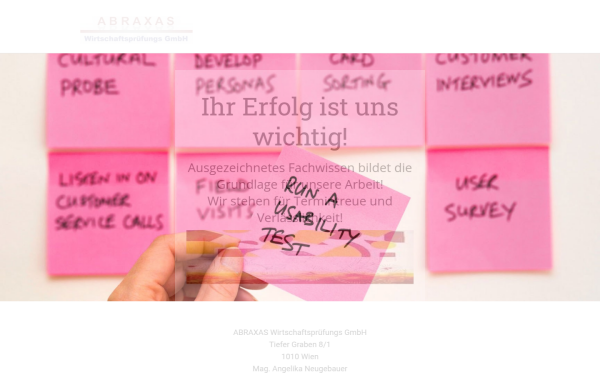 ABRAXAS
Wirtschaftsprüfungs GmbH
CULTURAL
PROBE
DEVELOP
PERSONAS
CARD
SORTING
CUSTOMER
INTERVIEWS
Ihr Erfolg ist uns
wichtig!
Ausgezeichnetes Fachwissen bildet die
Grundlage für unsere Arbeit!
Wir stehen für Termintreue und
Verlässlichkeit!
LISTEN IN ON
CUSTOMER
SERVICE CALLS
FIELD
VISITS
RUN A
USABILITY
TEST
USER
SURVEY
ABRAXAS Wirtschaftsprüfungs GmbH
Tiefer Graben 8/1
1010 Wien
Mag. Angelika Neugebauer